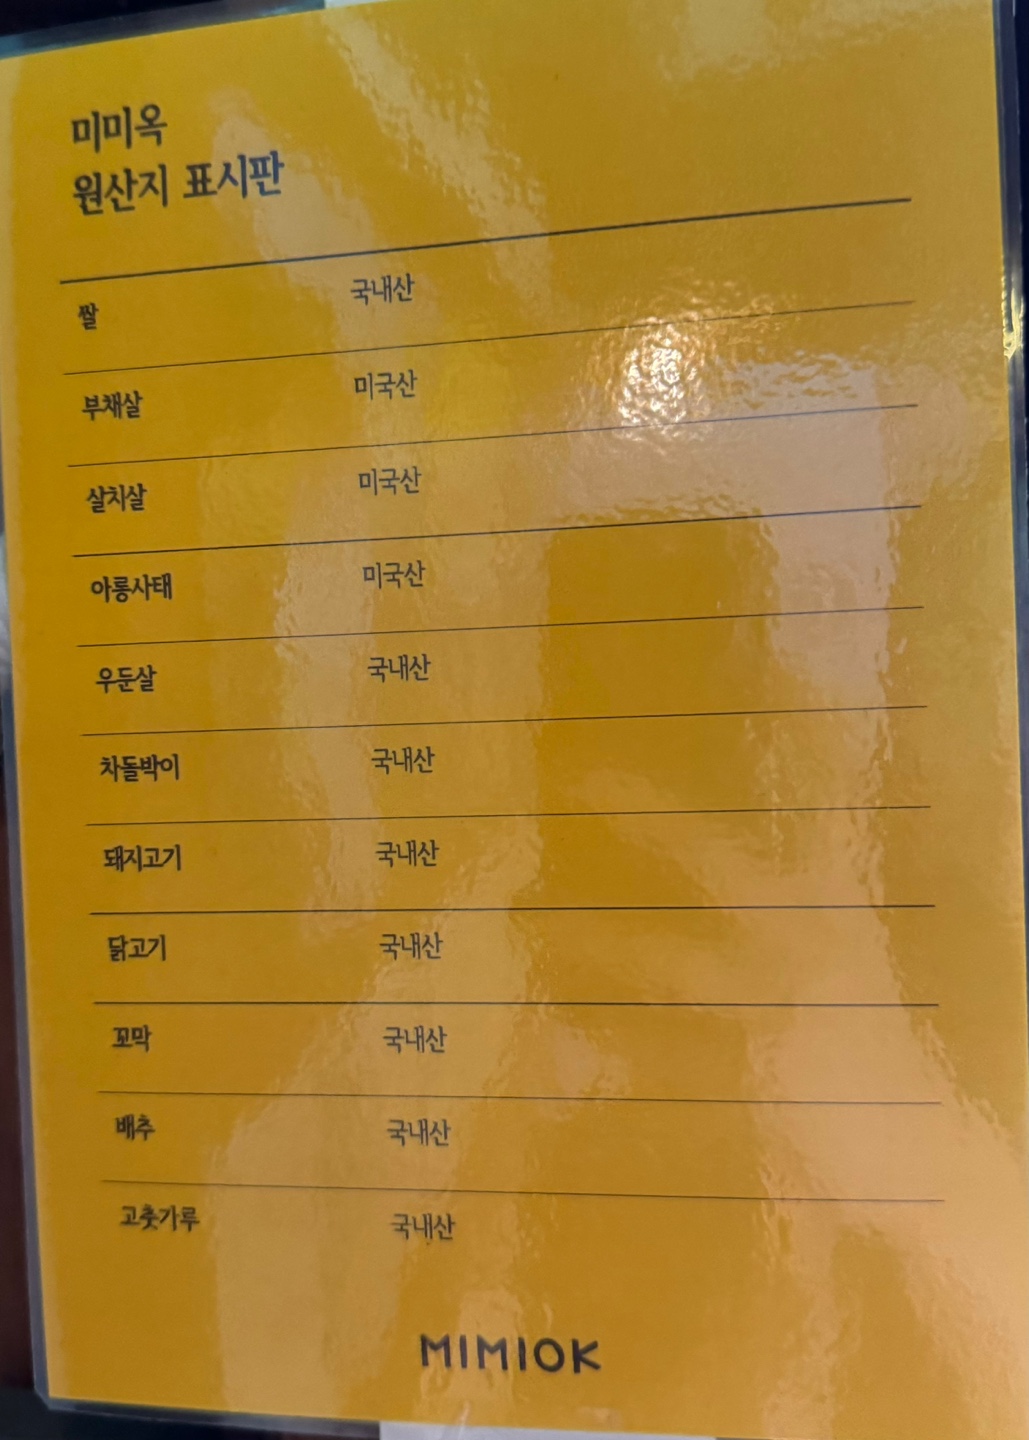 미미옥
원산지 표시판
쌀 국내산
부채살 미국산
살치살 미국산
아롱사태 미국산
우둔살 국내산
차돌박이 국내산
돼지고기 국내산
닭고기 국내산
꼬막 국내산
배추 국내산
고춧가루 국내산
MIMIOK